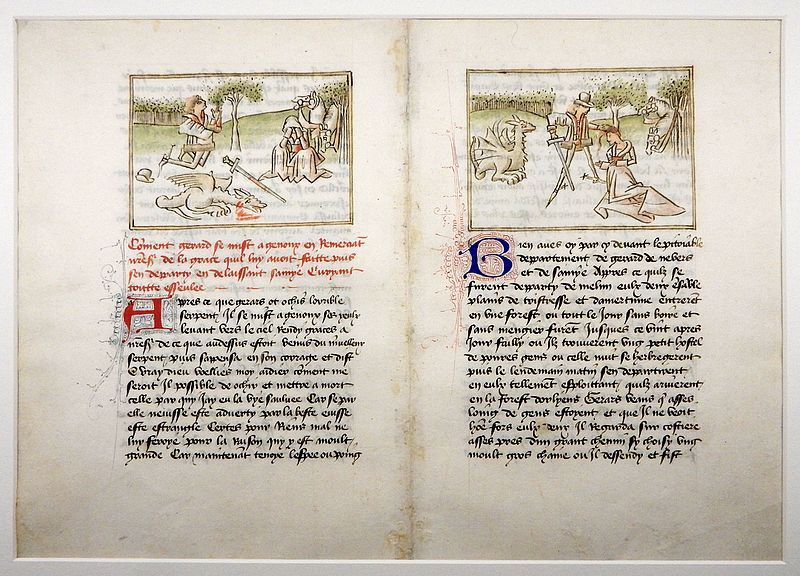 Coment gerard se mist a genoux en Remerciant
nresr de la grace quil luy avoit faitte puis
sen departy en delaissant sa mye Euryant
toutte esseulee
Apres ce que gerars ot ochis lorrible
serpent Il se mist a genoux ses yeulx
levant vers le ciel Rendy graces a
nresr de ce que audessus estoit venus du merveilleux
serpent puis sapensa en son corrage et dist
O vray dieu voellies moy aidier coment me
seroit Il possible de ochir et mettre a mort
celle par quy Jay eu la vye saulvee Car se par
elle neuisse este adverty par la beste euisse
este estrangle Certes pour Riens mal ne
luy feroye pour la Raison quy y est moult
grande Car maintenant tenoye lespee ou poing
Bien aves oy par cy devant le pitoiable
departement de gerard de nevers
et de sa mye Apres ce quilz se
furent departy de melun eulx deux ensable
plains de tristresse et damertume entreret
en une forest ou tout le Jour sans boire et
sans mengier furet Jusques ce vint apres
Jour failly ou Ilz trouverent ung petit hostel
de povres gens ou celle nuit se herbergerent
puis le lendemain matin sen departirent
en eulx tellement esploittant quilz arriverent
en la forest dorlyens Gerars veans q asses
loing de gens estoyent et que Il ne veoit
hoe fors eulx deux Il Regarda sur costiere
asses pres dun grant chemin sy choisy ung
moult gros chaine ou Il dessendy et fist